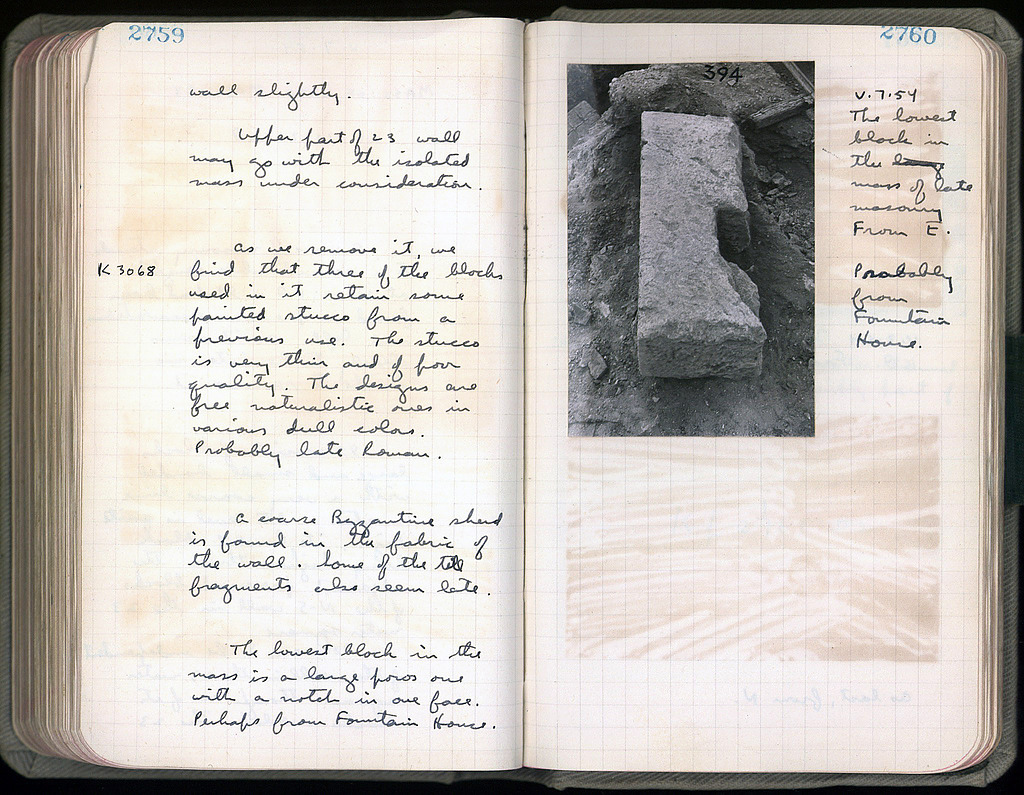 2759
wall slightly.
Upper part of 23 wall
may go with the isolated
mass under consideration.
K 3068
as we remove it, we
find that three of the blocks
used in it retain some
painted stucco from a
previous use. The stucco
is very thin and of poor
quality. The designs are
free naturalistic ones in
various dull colors.
Probably late Roman.
a coarse Byzantine sherd
is found in the fabric of
the wall. Some of the tile
fragments also seem late.
The lowest block in the
mass is a large poros one
with a notch in one face.
Perhaps from Fountain House.
2760
394
V.7.54
The lowest
block in
the large
mass of late
masonry
From E.
Probably
from
Fountain
House.